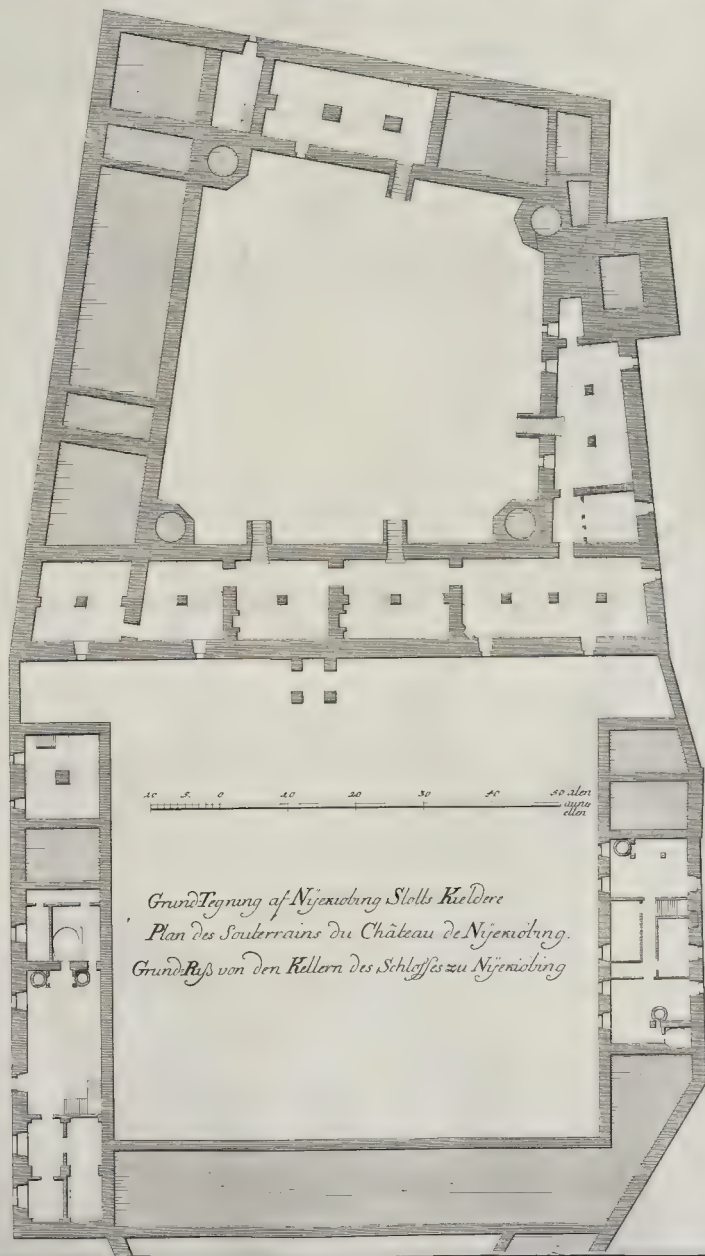 10 5. 0 10 20 30 40 50 alen
aunes
ellen
Grund-Tegning af Nÿekiobing Slotts Kieldere
Plan des Souterrains du Château de Nÿekiöbing.
Grund-Riß von den Kellern des Schloſſes zu Nÿekiöbing